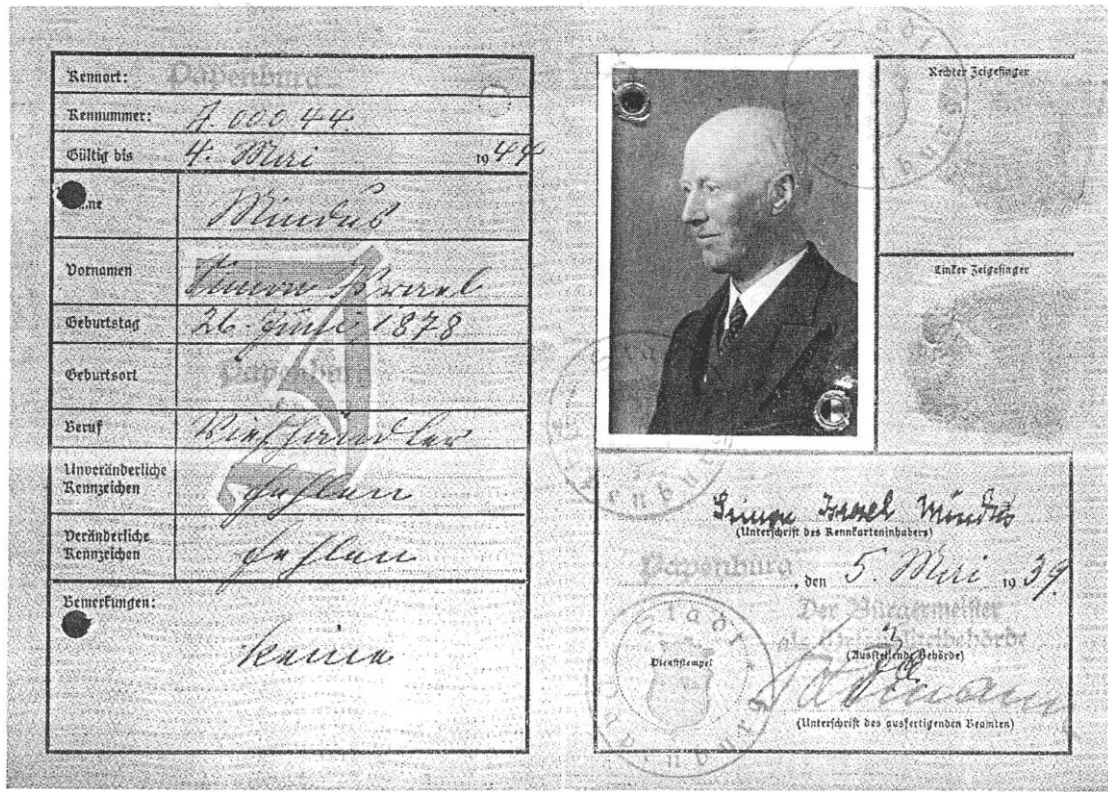 Kennort: Papenburg
Kennummer: A.00044.
Gültig bis 4. Mai 1944
Name Mindus
Vornamen Simon Israel
Geburtstag 26. Juni 1878
Geburtsort Papenburg
Beruf Viehhändler
Unveränderliche
Kennzeichen fehlen
Veränderliche
Kennzeichen fehlen
Bemerkungen:
keine
J
Rechter Zeigefinger
Linker Zeigefinger
Simon Israel Mindus
(Unterschrift des Kennkarteninhabers)
Papenburg, den 5. Mai 1939.
Der Bürgermeister
als Ortspolizeibehörde
(Ausstellende Behörde)
Dienststempel
(Unterschrift des ausfertigenden Beamten)
Stadt Papenburg